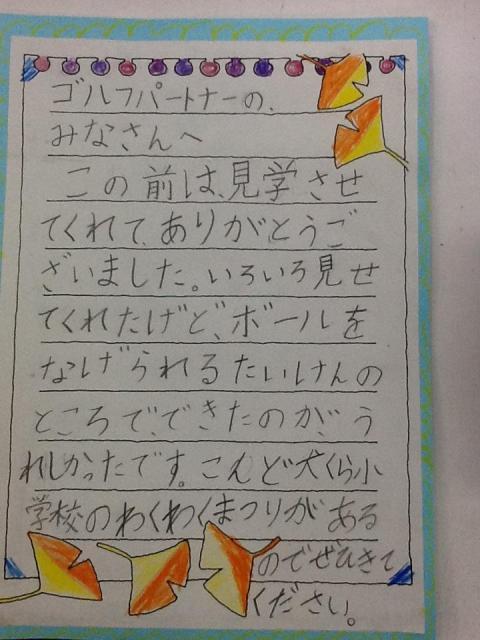 ゴルフパートナーの、
みなさんへ
この前は、見学させ
てくれて、ありがとうご
ざいました。いろいろ見せ
てくれたけど、ボールを
なげられるたいけんの
ところで、できたのが、う
れしかったです。こんど大くら小
学校のわくわくまつりがある
のでぜひきて
ください。